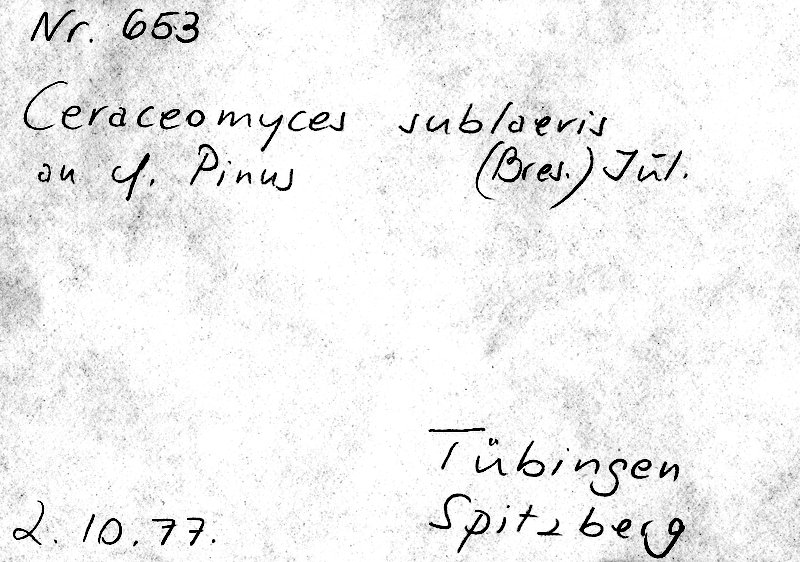 Nr. 653
Ceraceomyces sublaevis
an cf. Pinus (Bres.) Jül.
Tübingen
2. 10. 77. Spitzberg